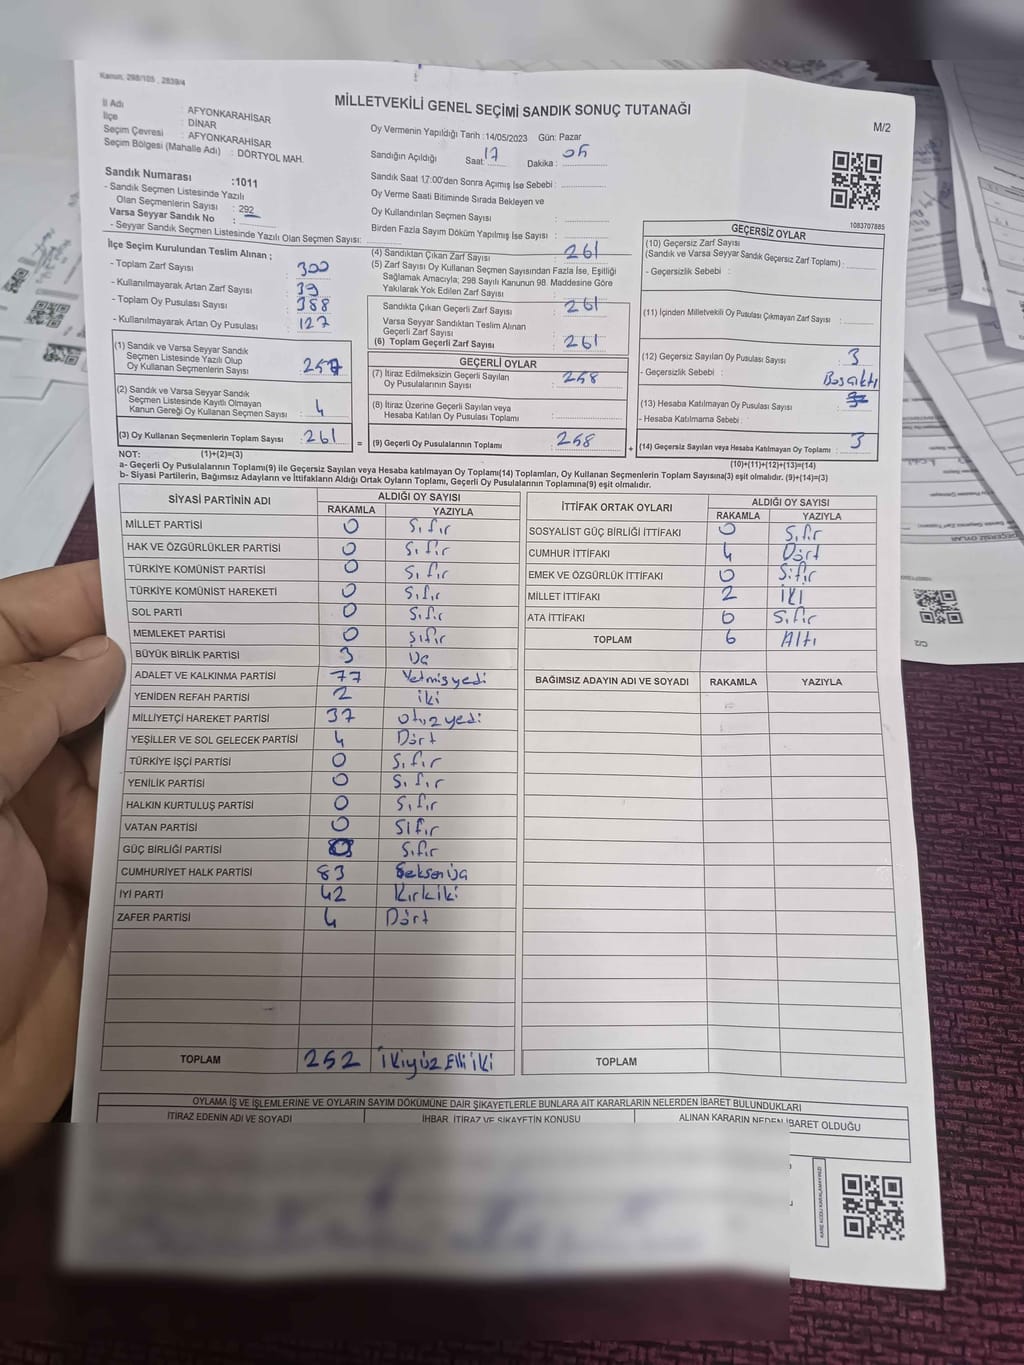 Kanun. 298/105 , 2839/4
MİLLETVEKİLİ GENEL SEÇİMİ SANDIK SONUÇ TUTANAĞI
M/2
İl Adı : AFYONKARAHİSAR
İlçe : DİNAR
Seçim Çevresi : AFYONKARAHİSAR
Seçim Bölgesi (Mahalle Adı) : DÖRTYOL MAH.
Sandık Numarası :1011
- Sandık Seçmen Listesinde Yazılı
Olan Seçmenlerin Sayısı : 292
Varsa Seyyar Sandık No :
- Seyyar Sandık Seçmen Listesinde Yazılı Olan Seçmen Sayısı:
Oy Vermenin Yapıldığı Tarih :14/05/2023 Gün: Pazar
Sandığın Açıldığı Saat: 17 Dakika : 05
Sandık Saat 17:00'den Sonra Açımış İse Sebebi :
Oy Verme Saati Bitiminde Sırada Bekleyen ve
Oy Kullandırılan Seçmen Sayısı :
Birden Fazla Sayım Döküm Yapılmış İse Sayısı :
1083707885
İlçe Seçim Kurulundan Teslim Alınan ;
- Toplam Zarf Sayısı : 300
- Kullanılmayarak Artan Zarf Sayısı : 39
- Toplam Oy Pusulası Sayısı : 388
- Kullanılmayarak Artan Oy Pusulası : 127
(1) Sandık ve Varsa Seyyar Sandık
Seçmen Listesinde Yazılı Olup
Oy Kullanan Seçmenlerin Sayısı : 257
(2) Sandık ve Varsa Seyyar Sandık
Seçmen Listesinde Kayıtlı Olmayan
Kanun Gereği Oy Kullanan Seçmen Sayısı : 4
(3) Oy Kullanan Seçmenlerin Toplam Sayısı : 261
(4) Sandıktan Çıkan Zarf Sayısı : 261
(5) Zarf Sayısı Oy Kullanan Seçmen Sayısından Fazla İse, Eşitliği
Sağlamak Amacıyla; 298 Sayılı Kanunun 98. Maddesine Göre
Yakılarak Yok Edilen Zarf Sayısı :
Sandıkta Çıkan Geçerli Zarf Sayısı : 261
Varsa Seyyar Sandıktan Teslim Alınan
Geçerli Zarf Sayısı :
(6) Toplam Geçerli Zarf Sayısı : 261
GEÇERLİ OYLAR
(7) İtiraz Edilmeksizin Geçerli Sayılan
Oy Pusulalarının Sayısı : 258
(8) İtiraz Üzerine Geçerli Sayılan veya
Hesaba Katılan Oy Pusulası Toplamı :
= (9) Geçerli Oy Pusulalarının Toplamı : 258
GEÇERSİZ OYLAR
(10) Geçersiz Zarf Sayısı
(Sandık ve Varsa Seyyar Sandık Geçersiz Zarf Toplamı) :
- Geçersizlik Sebebi :
(11) İçinden Milletvekili Oy Pusulası Çıkmayan Zarf Sayısı :
(12) Geçersiz Sayılan Oy Pusulası Sayısı : 3
- Geçersizlik Sebebi : Boş çıktı
(13) Hesaba Katılmayan Oy Pusulası Sayısı :
- Hesaba Katılmama Sebebi :
+ (14) Geçersiz Sayılan veya Hesaba Katılmayan Oy Toplamı : 3
NOT: (1)+(2)=(3)
(10)+(11)+(12)+(13)=(14)
a- Geçerli Oy Pusulalarının Toplamı(9) ile Geçersiz Sayılan veya Hesaba katılmayan Oy Toplamı(14) Toplamları, Oy Kullanan Seçmenlerin Toplam Sayısına(3) eşit olmalıdır. (9)+(14)=(3)
b- Siyasi Partilerin, Bağımsız Adayların ve İttifakların Aldığı Ortak Oyların Toplamı, Geçerli Oy Pusulalarının Toplamına(9) eşit olmalıdır.
SİYASİ PARTİNİN ADI ALDIĞI OY SAYISI
RAKAMLA YAZIYLA
MİLLET PARTİSİ 0 Sıfır
HAK VE ÖZGÜRLÜKLER PARTİSİ 0 Sıfır
TÜRKİYE KOMÜNİST PARTİSİ 0 Sıfır
TÜRKİYE KOMÜNİST HAREKETİ 0 Sıfır
SOL PARTİ 0 Sıfır
MEMLEKET PARTİSİ 0 Sıfır
BÜYÜK BİRLİK PARTİSİ 3 Üç
ADALET VE KALKINMA PARTİSİ 77 Yetmişyedi
YENİDEN REFAH PARTİSİ 2 iki
MİLLİYETÇİ HAREKET PARTİSİ 37 otuzyedi
YEŞİLLER VE SOL GELECEK PARTİSİ 4 Dört
TÜRKİYE İŞÇİ PARTİSİ 0 Sıfır
YENİLİK PARTİSİ 0 Sıfır
HALKIN KURTULUŞ PARTİSİ 0 Sıfır
VATAN PARTİSİ 0 Sıfır
GÜÇ BİRLİĞİ PARTİSİ 0 Sıfır
CUMHURİYET HALK PARTİSİ 83 Seksenüç
İYİ PARTİ 42 Kırkiki
ZAFER PARTİSİ 4 Dört
TOPLAM 252 İkiyüz Elli iki
İTTİFAK ORTAK OYLARI ALDIĞI OY SAYISI
RAKAMLA YAZIYLA
SOSYALİST GÜÇ BİRLİĞİ İTTİFAKI 0 Sıfır
CUMHUR İTTİFAKI 4 Dört
EMEK VE ÖZGÜRLÜK İTTİFAKI 0 Sıfır
MİLLET İTTİFAKI 2 İki
ATA İTTİFAKI 0 Sıfır
TOPLAM 6 Altı
BAĞIMSIZ ADAYIN ADI VE SOYADI RAKAMLA YAZIYLA
TOPLAM
OYLAMA İŞ VE İŞLEMLERİNE VE OYLARIN SAYIM DÖKÜMÜNE DAİR ŞİKAYETLERLE BUNLARA AİT KARARLARIN NELERDEN İBARET BULUNDUKLARI
İTİRAZ EDENİN ADI VE SOYADI İHBAR, İTİRAZ VE ŞİKAYETİN KONUSU ALINAN KARARIN NEDEN İBARET OLDUĞU
KARE KODU KARALAMAYINIZ!